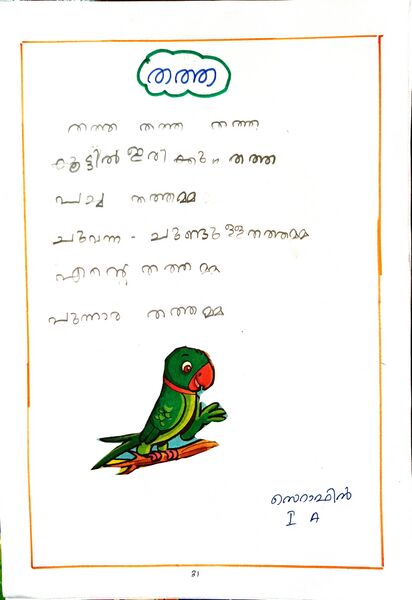 തത്ത
തത്ത തത്ത തത്ത
കൂട്ടിൽ ഇരിക്കുന്ന തത്ത
പച്ച തത്തമ്മ
ചുവന്ന - ചുണ്ടുള്ള തത്തമ്മ
എന്റെ തത്തമ്മ
പുന്നാര തത്തമ്മ
സെറാഫിൻ
I A
31